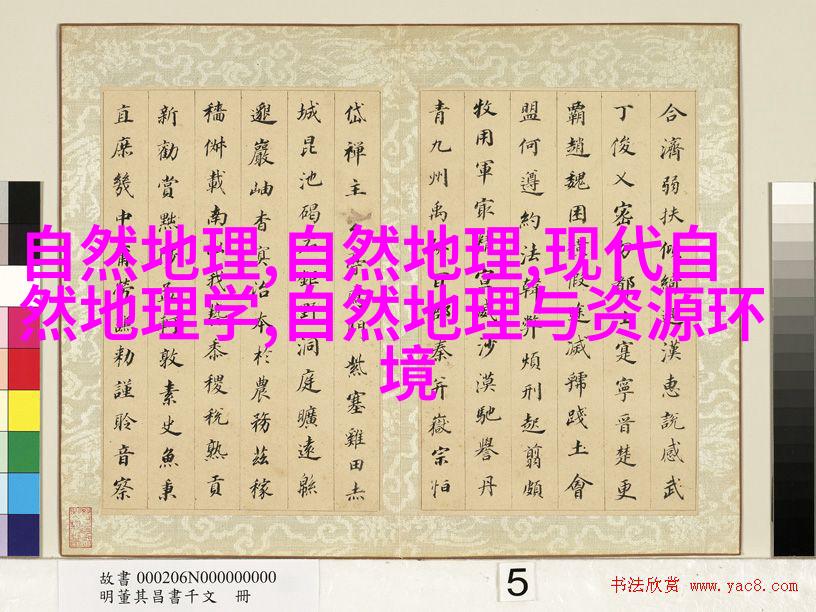 自然地理,自然地理,现代自
然地理学,自然地理与资源环
境
合濟弱扶傾綺迴漢惠說感武
丁俊乂密勿多士寔寧晉楚更
霸趙魏困橫假途滅虢踐土會
盟何遵約法韓弊煩刑起翦頗
牧用軍最精宣威沙漠馳譽丹
青九州禹百郡秦并嶽宗恒
岱禪主云亭門紫塞雞田赤
城昆池碣石鉅野洞庭曠遠緜
邈巖岫杳冥治本於農務茲稼
穡俶載南我藝黍稷稅熟貢
新勸賞黜陟孟軻敦素史魚秉
直庶幾中庸勞謙勑謹聆音察
故書 000206N000000000
明董其昌書千文 冊
5
书法欣赏 www.yac8.com